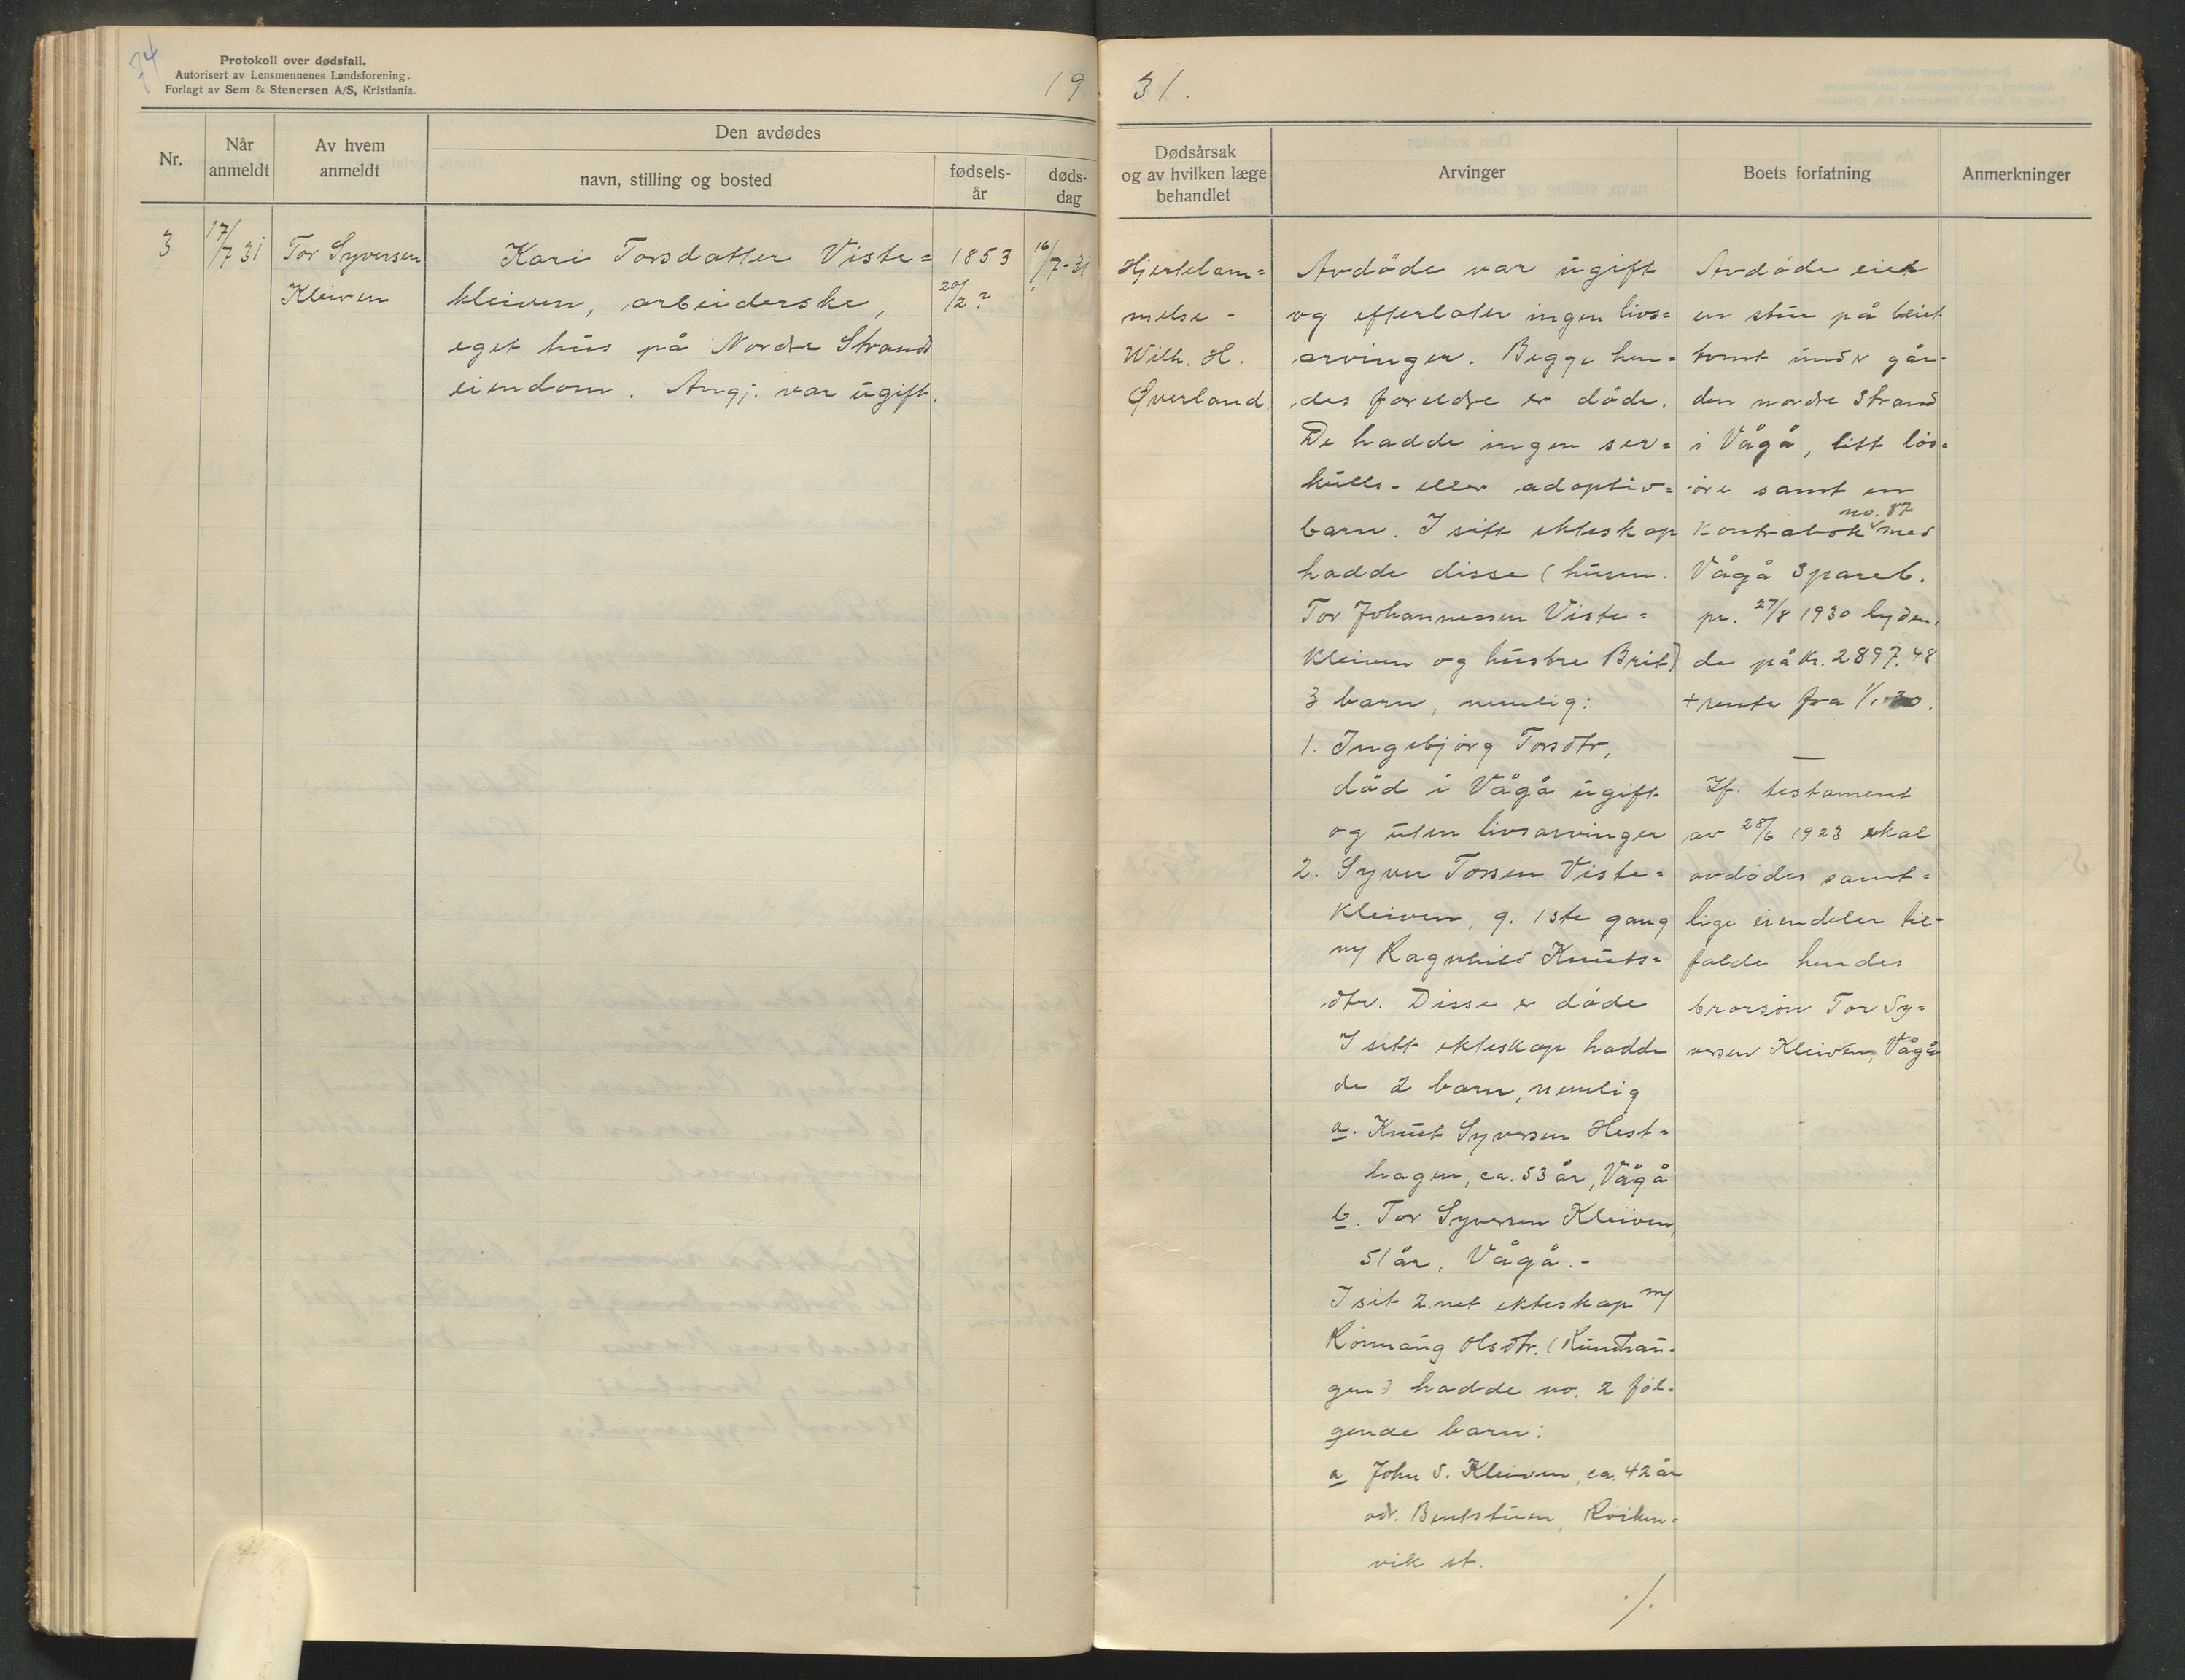 74
Protokoll over dødsfall.
Autorisert av Lensmennenes Landsforening.
Forlagt av Sem & Stenersen A/S, Kristiania.
19
Nr.
Når
anmeldt
Av hvem
anmeldt
Den avdødes
navn, stilling og bosted
fødsels-
år
døds-
dag
3
17/7 31
Tor Syversen
Kleiven
Kari Torsdatter Viste=
kleiven, arbeiderske,
eget hus på Nordre Strands
eiendom. Angj. var ugift.
1853
20/2?
16/7-31
31.
Dødsårsak
og av hvilken læge
behandlet
Arvinger
Boets forfatning
Anmerkninger
Hjertelam=
melse -
Wilh. H.
Øverland.
Avdöde var ugift
og efterlater ingen livs=
arvinger. Begge hen=
des foreldre er döde.
De hadde ingen sær=
kulls- eller adoptiv=
barn. I sitt ekteskap
hadde disse (husm.
Tor Johannessen Viste=
kleiven og hustre Brit)
3 barn, nemlig:
1. Ingebjörg Torsdtr,
död i Vågå ugift
og uten livsarvinger
2. Syver Torsen Viste=
kleiven, g. 1ste gang
m/ Ragnhild Knuts=
dtr. Disse er döde
I sitt ekteskap hadde
de 2 barn, nemlig
a. Knut Syversen Hest=
hagen, ca. 53 år, Vågå
b. Tor Syversen Kleiven,
51 år, Vågå.-
I sit 2net ekteskap m/
Rönnaug Olsdtr.
hadde no. 2 föl=
gende barn:
a John S. Kleiven, ca. 42 år
adr. Bentstuen, Röiken=
vik st.
./.
Avdöde eiet
en stue på leiet
tomt under går-
den nordre Strand
i Vågå, litt lös=
öre samt en
no. 87
Kontrabok med
Vågå Spareb.
pr. 27/8 1930 lyden-
de på kr. 2897.48
+ renter fra 1/1 30.
—
If. testament
av 28/6 1923 skal
avdödes samt=
lige eiendeler til-
falde hendes
brorsön Tor Sy=
versen Kleiven, Vågå